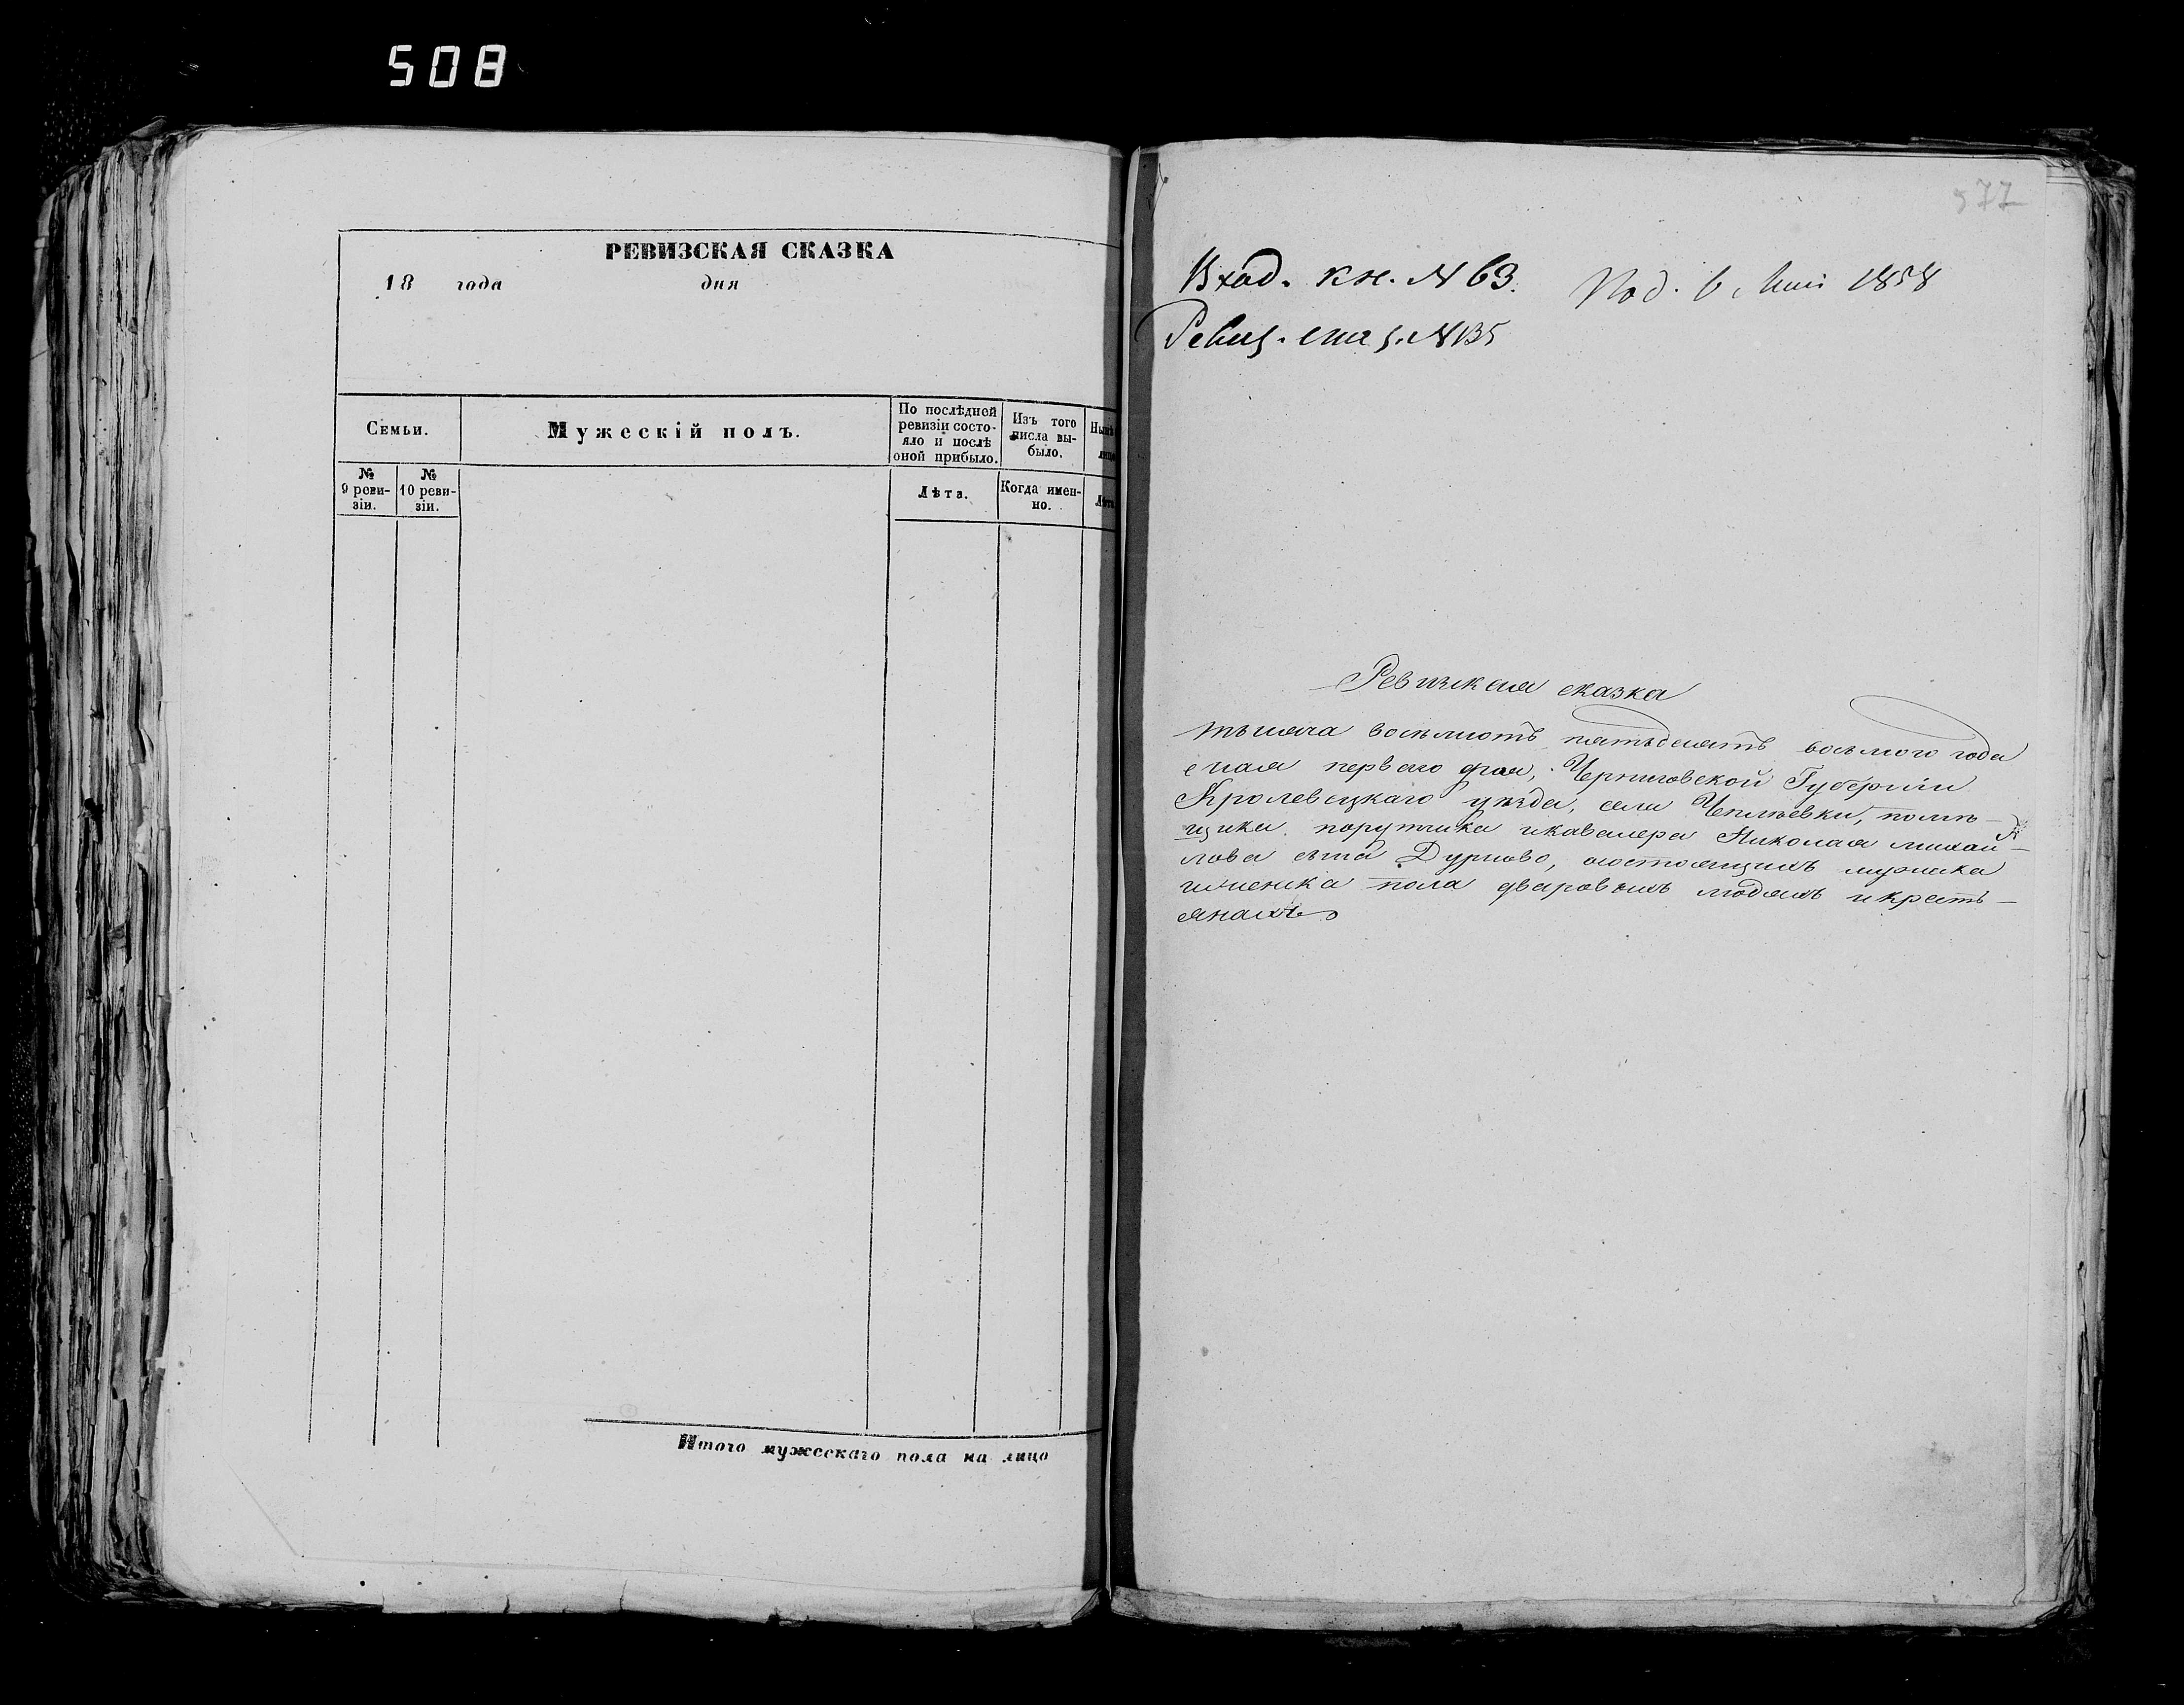 508
РЕВИЗСКАЯ СКАЗКА
18 года дня
Семьи.
Мужескій полъ.
По послѣдней
ревизіи состо-
яло и послѣ
оной прибыло.
Изъ того
числа вы-
было.
№
9 реви-
зіи.
№
10 реви-
зіи.
Лѣта.
Когда имен-
но.
Лѣта
Итого мужескаго пола на лицо
577
Вход. кн. № 63.
Под. 6 Маія 1858
Ревиз. сказ. № 135
Ревизская сказка
тысяча восемьсотъ пятьдесятъ восьмого года
маія первого дня, Черниговской Губерніи
Кролевецкаго уѣзда, села Чепліевки, помѣ-
щика порутчика и кавалера Николая михай-
лова сына Дурново, состоящихъ мужска
и женска пола дворовыхъ людяхъ и кресть-
янахъ